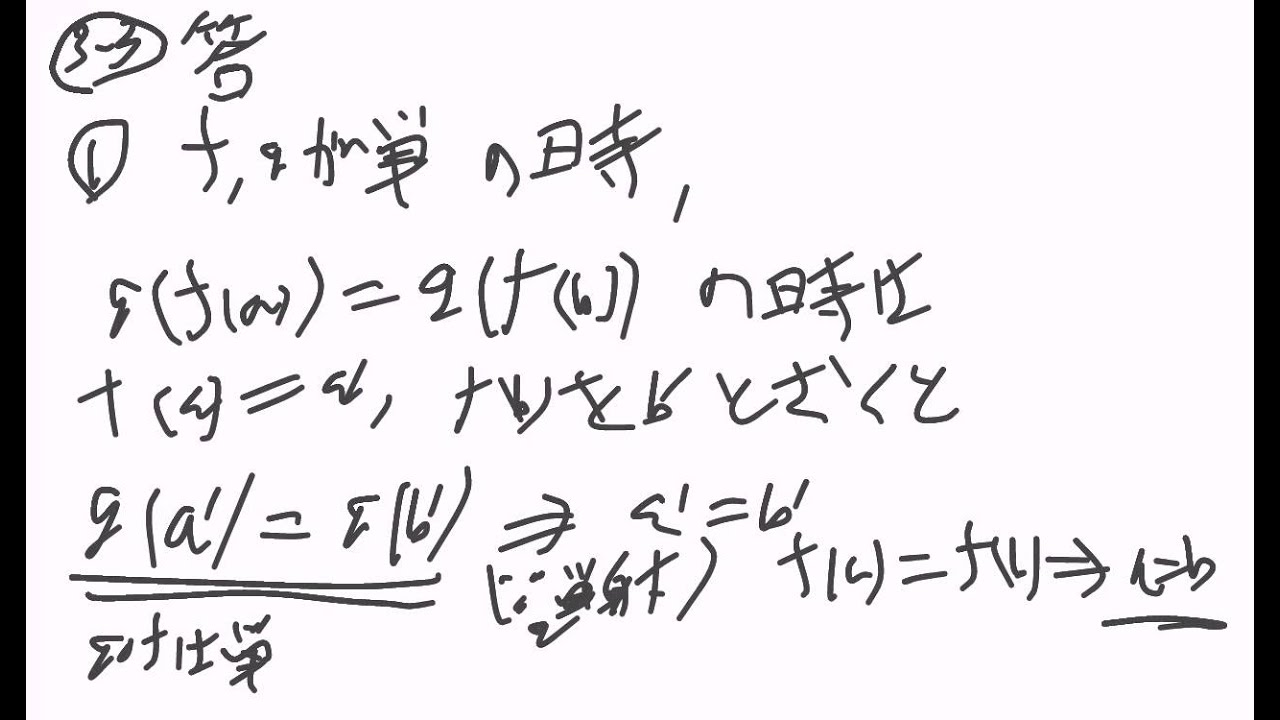 3-3 答
① f, gが単の時,
g(f(a))=g(f(b))の時は
f(a)=a', f(b)をb'とおくと
g(a')=g(b') ⇒ a'=b'
(∵単射) f(a)=f(b)⇒a=b
g∘fは単